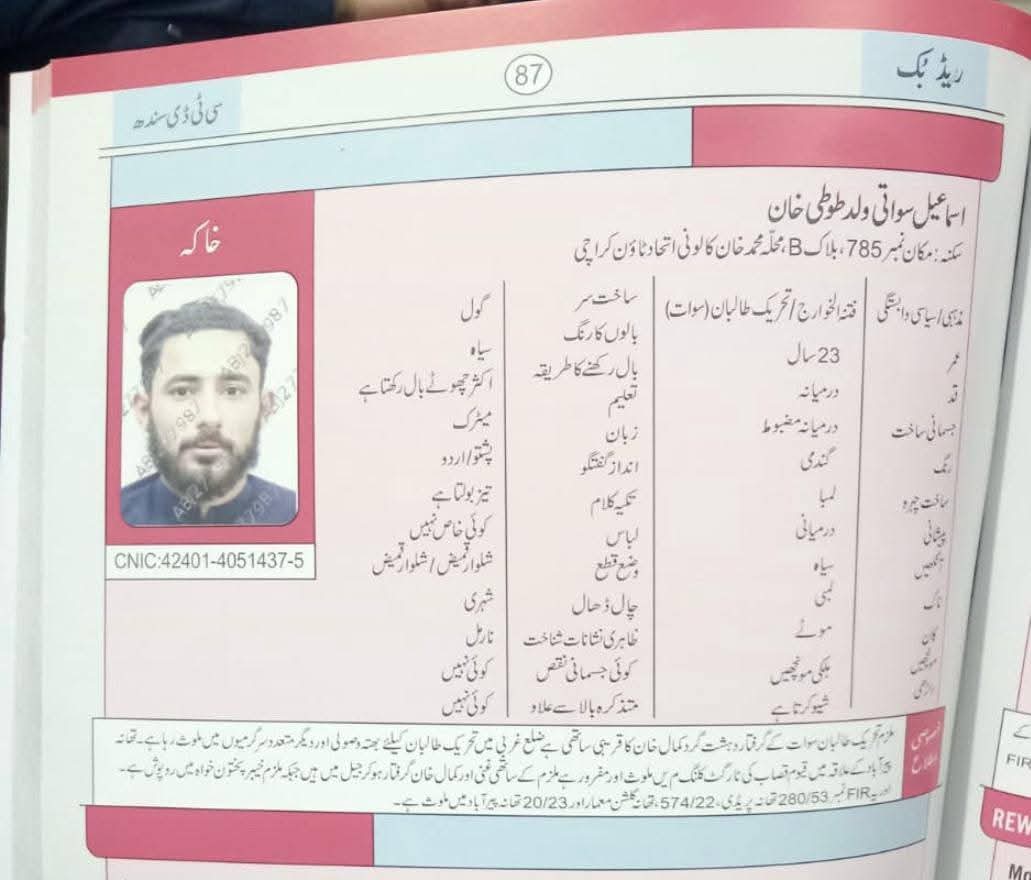 ریڈ بُک
87
سی ٹی ڈی سندھ
اسماعیل سواتی ولد طوطی خان
سکنہ: مکان نمبر 785، بلاک B، محلّہ محمد خان کالونی اتحاد ٹاؤن کراچی
خاکہ
CNIC:42401-4051437-5
مذہبی/سیاسی وابستگی
فتنۃ الخوارج/تحریک طالبان (سوات)
عمر
23 سال
قد
درمیانہ
جسمانی ساخت
درمیانہ مضبوط
رنگ
گندمی
ساخت چہرہ
لمبا
پیشانی
درمیانی
آنکھیں
سیاہ
ناک
لمبی
کان
موٹے
مونچھیں
ہلکی مونچھیں
داڑھی
شیو کرتا ہے
ساخت سر
گول
بالوں کا رنگ
سیاہ
بال رکھنے کا طریقہ
اکثر چھوٹے بال رکھتا ہے
تعلیم
میٹرک
زبان
پشتو/اردو
انداز گفتگو
تیز بولتا ہے
تکیہ کلام
کوئی خاص نہیں
لباس
شلوار قمیض/شلوار قمیض
وضع قطع
شہری
چال ڈھال
نارمل
ظاہری نشانات شناخت
کوئی نہیں
کوئی جسمانی نقص
کوئی نہیں
متذکرہ بالا سے علاو
خصوصی
اطلاع
ملزم تحریک طالبان سوات کے گرفتار دہشت گرد کمال خان کا قریبی ساتھی ہے ضلع غربی میں تحریک طالبان کیلئے بھتہ وصولی اور دیگر متعدد سرگرمیوں میں ملوث رہا ہے۔ تھانہ
پیر آباد کے علاقہ میں قیوم قصاب کی ٹارگٹ کلنگ میں ملوث اور مفرور ہے ملزم کے ساتھی غنی اور کمال خان گرفتار ہو کر جیل میں ہیں جبکہ ملزم خیبر پختون خواہ میں روپوش ہے۔
اور یہ FIR نمبر 280/53 تھانہ پریڈی، 574/22، تھانہ گلشن معمار اور 20/23 تھانہ پیر آباد میں ملوث ہے۔
FIR
REW